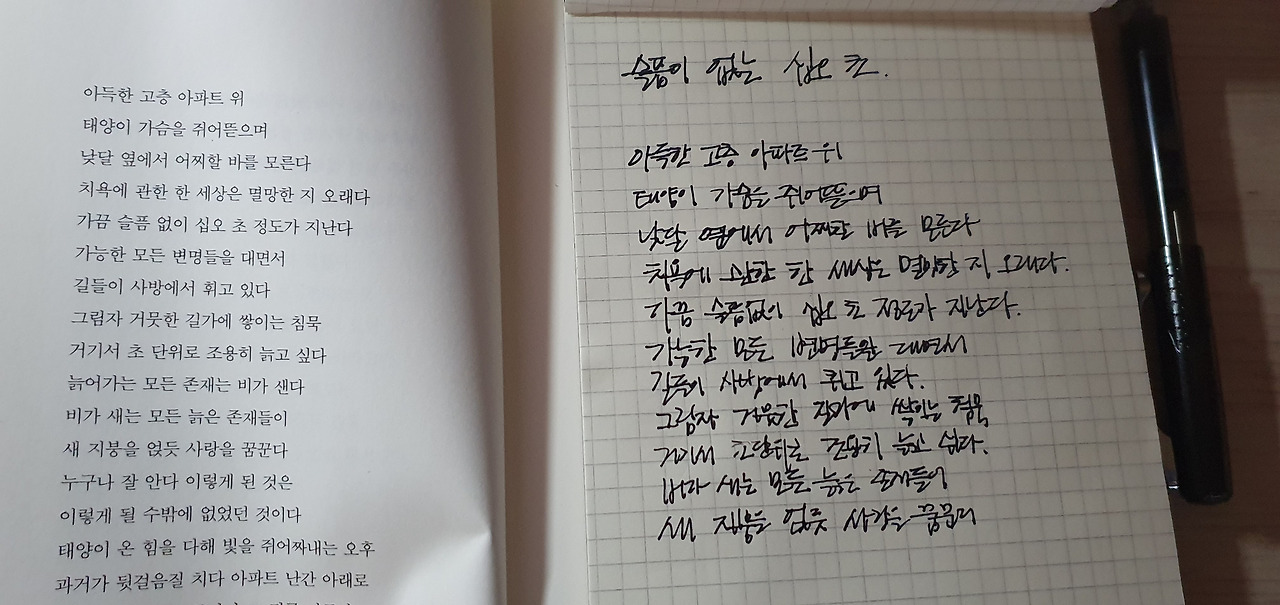 아득한 고층 아파트 위
태양이 가슴을 쥐어뜯으며
낮달 옆에서 어찌할 바를 모른다
치욕에 관한 한 세상은 멸망한 지 오래다
가끔 슬픔 없이 십오 초 정도가 지난다
가능한 모든 변명들을 대면서
길들이 사방에서 휘고 있다
그림자 거뭇한 길가에 쌓이는 침묵
거기서 초 단위로 조용히 늙고 싶다
늙어가는 모든 존재는 비가 샌다
비가 새는 모든 늙은 존재들이
새 지붕을 얹듯 사랑을 꿈꾼다
누구나 잘 안다 이렇게 된 것은
이렇게 될 수밖에 없었던 것이다
태양이 온 힘을 다해 빛을 쥐어짜내는 오후
과거가 뒷걸음질 치다 아파트 난간 아래로
슬픔이 없는 십오 초.
아득한 고층 아파트 위
태양이 가슴을 쥐어뜯으며
낮달 옆에서 어찌할 바를 모른다
치욕에 관한 한 세상은 멸망한 지 오래다.
가끔 슬픔없이 십오 초 정도가 지난다.
가능한 모든 변명들을 대면서
길들이 사방에서 휘고 있다.
그림자 거뭇한 길가에 쌓이는 침묵
거기서 초단위로 조용히 늙고 싶다.
비가 새는 모든 늙은 존재들이
새 지붕을 얹듯 사랑을 꿈꾼다